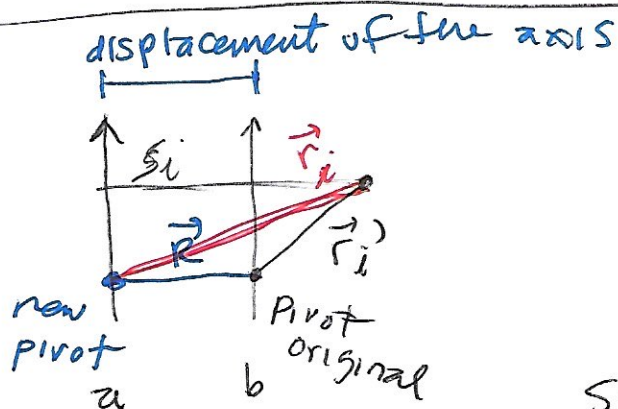 displacement of the axis
Si
r⃗i
R⃗
r⃗i'
new
pivot
Pivot
original
a
b
S